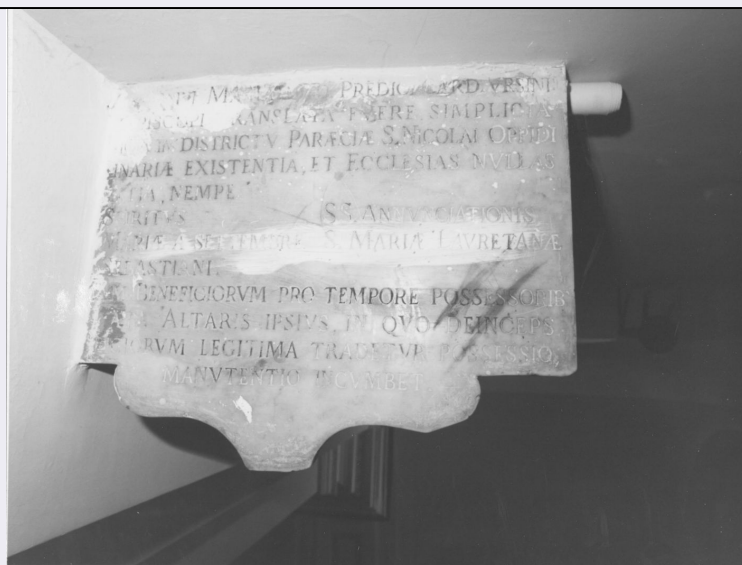 PREDIC ARD. VRSINI
TRANSLATA FVERE SIMPLICIA
DISTRICTV PARÆCIÆ S. NICOLAI OPPIDI
INARIÆ EXISTENTIA, ET ECCLESIAS NVLLAS
TIA, NEMPE
SPIRITVS SS. ANNVNCIATIONIS
MARIÆ A SETTEMBRE S. MARIÆ LAVRETANÆ
BASTIANI.
BENEFICIORVM PRO TEMPORE POSSESSORIB
ALTARIS IPSIVS, IN QVO DEINCEPS
IORVM LEGITIMA TRADETVR POSSESSIO,
MANVTENTIO INCVMBET